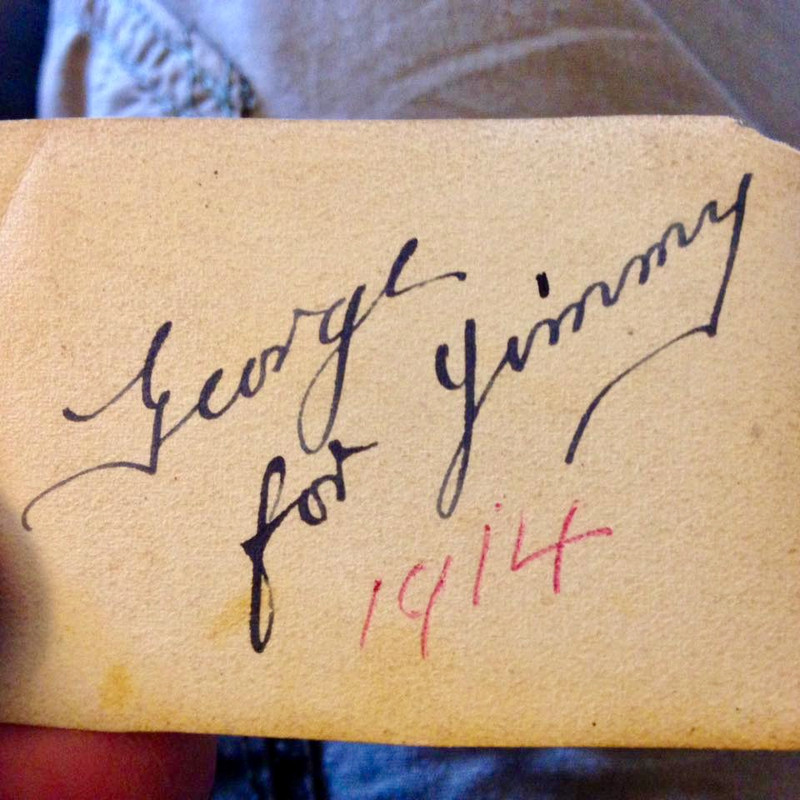 George
for Jimmy
1914